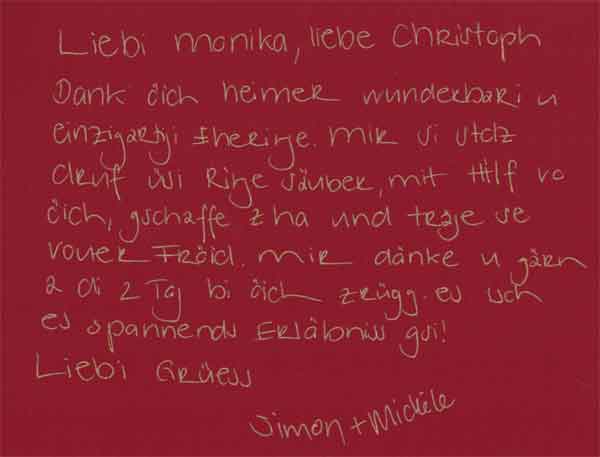 Liebi Monika, liebe Christoph
Dank öich heimer wunderbari u
einzigartigi Eheringe. Mir si stolz
druf üsi Ringe sälber, mit Hilf vo
öich, gschaffe z ha und träge se
voller Fröid. Mir dänke u gärn
a di 2 Tag bi öich zrügg. es isch
es spannends Erläbniss gsi!
Liebi Grüess
Simon + Michèle